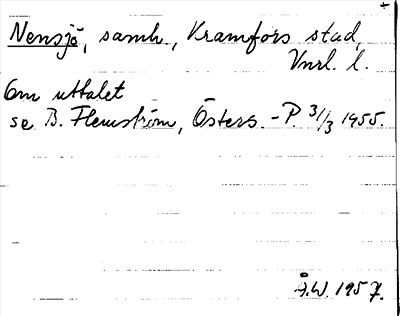 Nensjö, samh., Kramfors stad,
Vnrl. l.
Om uttalet
se B. Flemström, Östers.-P. 3/3 1955.
Å.W. 1957.